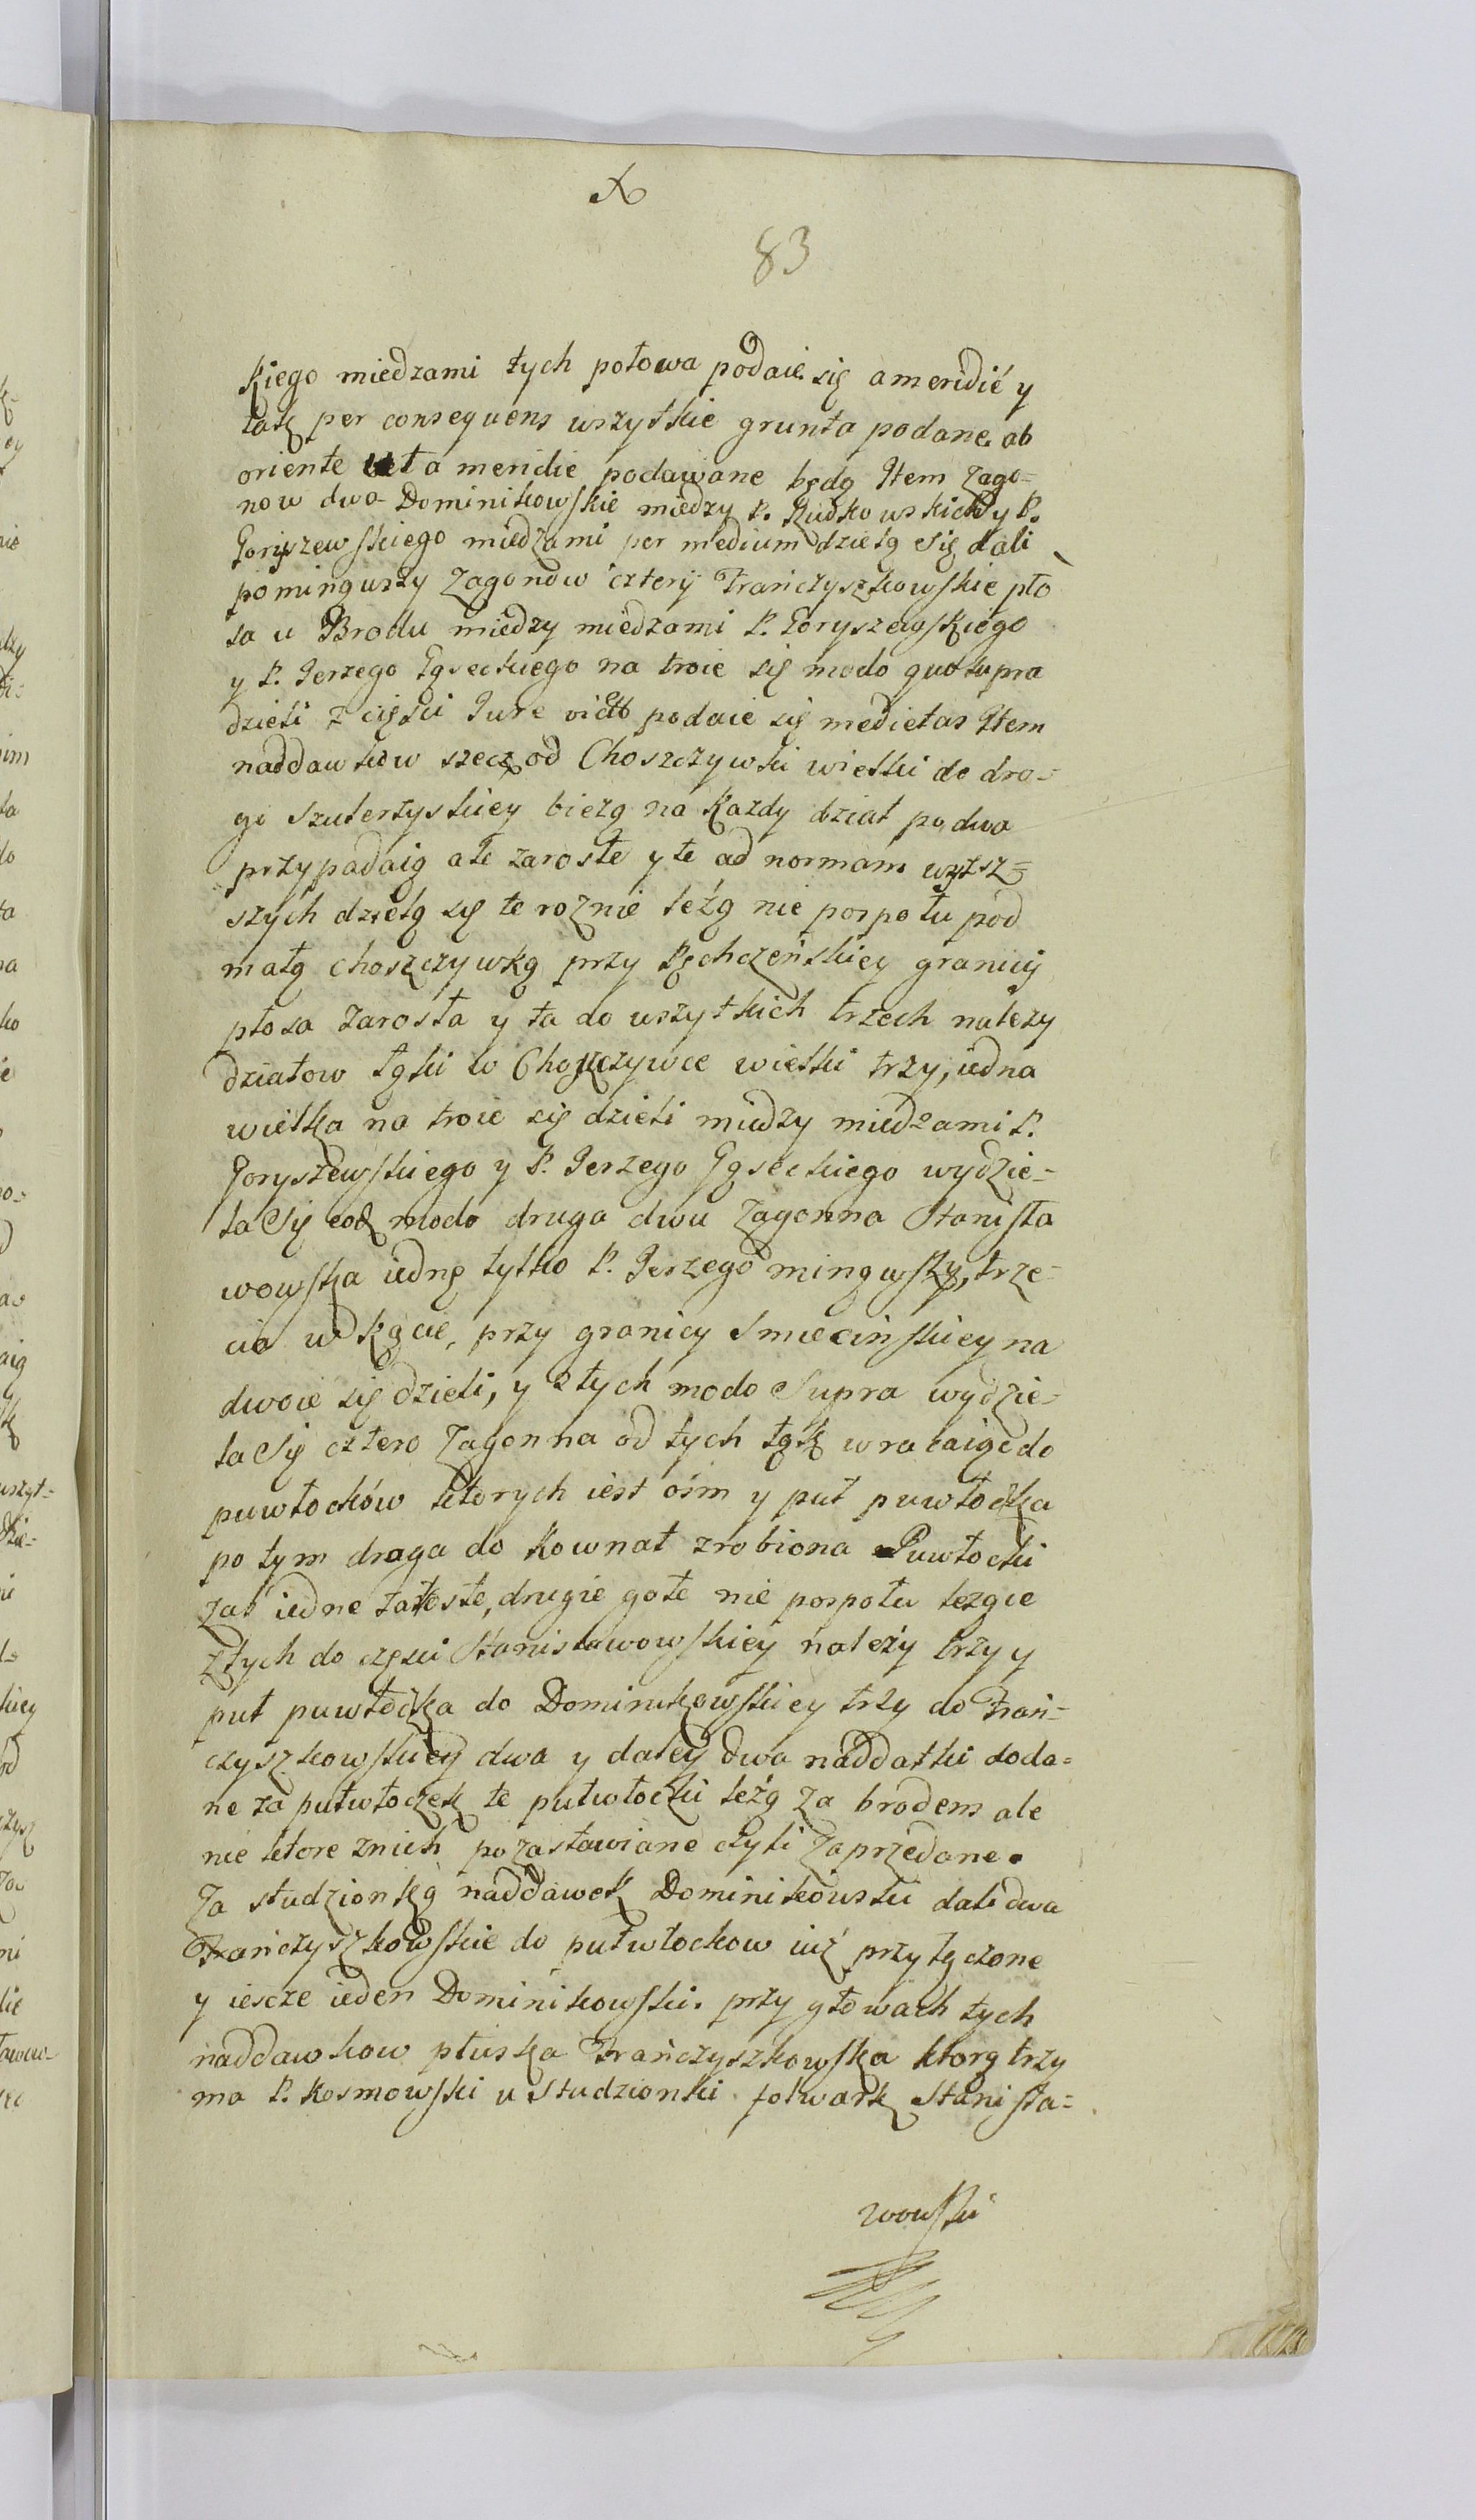 83
kiego miedzami tych połowa podaie się a meridie y
tak per consequens wszytkie grunta podane ab
oriente vel a meridie podawane będą Item Zago=
now dwa Dominikowskie miedzy P. Rudkowskich y P.
Goryszewskiego miedzami per medium dzielą się dali
pominąwszy Zagonow cztery Frańczyszkowskie pło
sa u Brodu miedzy miedzami P. Goryszewskiego
y P. Jerzego Gąseckiego na troie się modo quo supra
dzieli z części Jure podaie się medietas Item
naddawkow szecz od Choszczywki wielki do dro=
gi Szulerzyskiey bieżą na każdy dział po dwa
przypadaią ale zarosłe y te ad normam wyzsz=
szych dzielą się te roznie leżą nie pospołu pod
małą choszczywką przy Pęchczeńskiey granicy
płosa zarosła y ta do wszytkich trzech należy
działow Łąki w Choszczywce wielki trzy, iedna
wielka na troie się dzieli miedzy miedzami P.
Goryszewskiego y P. Jerzego Gąseckiego wydzie=
la się eod modo druga dwu Zagonna Stanisła
wowska iednę tylko P. Jerzego minąwszy, trze=
cia w kącie, przy granicy Smiecińskiey na
dwoie się dzieli, y z tych modo Supra wydzie=
la się cztero Zagonna od tych łąk wracaiąc do
puwłockόw ktorych iest ośm y puł puwłoćka
po tym draga do Kownat zrobiona Puwłocki
zaś iedne zarosłe, drugie gołe nie pospołu leżące
Ztych do części Stanisławowskiey należy trzy y
puł puwłoćka do Dominikowskiey trzy do Frań=
czyszkowskiey dwa y daley dwa naddatki doda=
ne za pułwłoczek te pułwłocki leżą za brodem ale
nie ktore znich pozastawiane czyli Zaprzedane.
Za studzionką naddawek Dominikowski dali dwa
Frańczyszkowskie do pułwłockow iuż przyłączone
y iescze ieden Dominikowski. przy głowach tych
naddawkow płuska Frańczyszkowska ktorą trzy
ma P. Kosmowski u Studzionki folwark Stanisła=
wowski